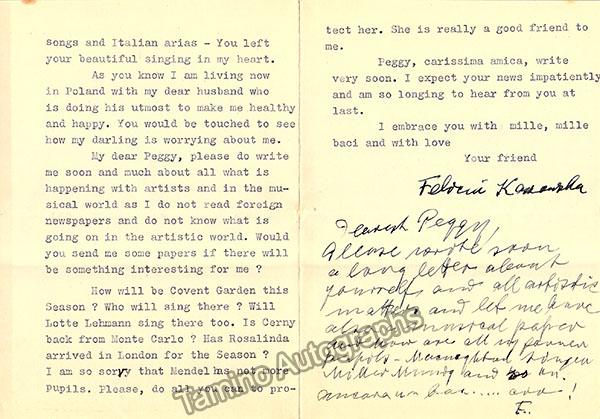 songs and Italian arias - You left
your beautiful singing in my heart.
As you know I am living now
in Poland with my dear husband who
is doing his utmost to make me healthy
and happy. You would be touched to see
how my darling is worrying about me.
My dear Peggy, please do write
me soon and much about all what is
happening with artists and in the mu-
sical world as I do not read foreign
newspapers and do not know what is
going on in the artistic world. Would
you send me some papers if there will
be something interesting for me ?
How will be Covent Garden this
Season ? Who will sing there ? Will
Lotte Lehmann sing there too. Is Cerny
back from Monte Carlo ? Has Rosalinda
arrived in London for the Season ?
I am so sorry that Mendel has not more
Pupils. Please, do all you can to pro-
tect her. She is really a good friend to
me.
Peggy, carissima amica, write
very soon. I expect your news impatiently
and am so longing to hear from you at
last.
I embrace you with mille, mille
baci and with love
Your friend
Dearest Peggy,
Please write soon
a long letter about
yourself and all artistic
matters and let me have
also musical papers
how are all my former
and
Tamino Autographs